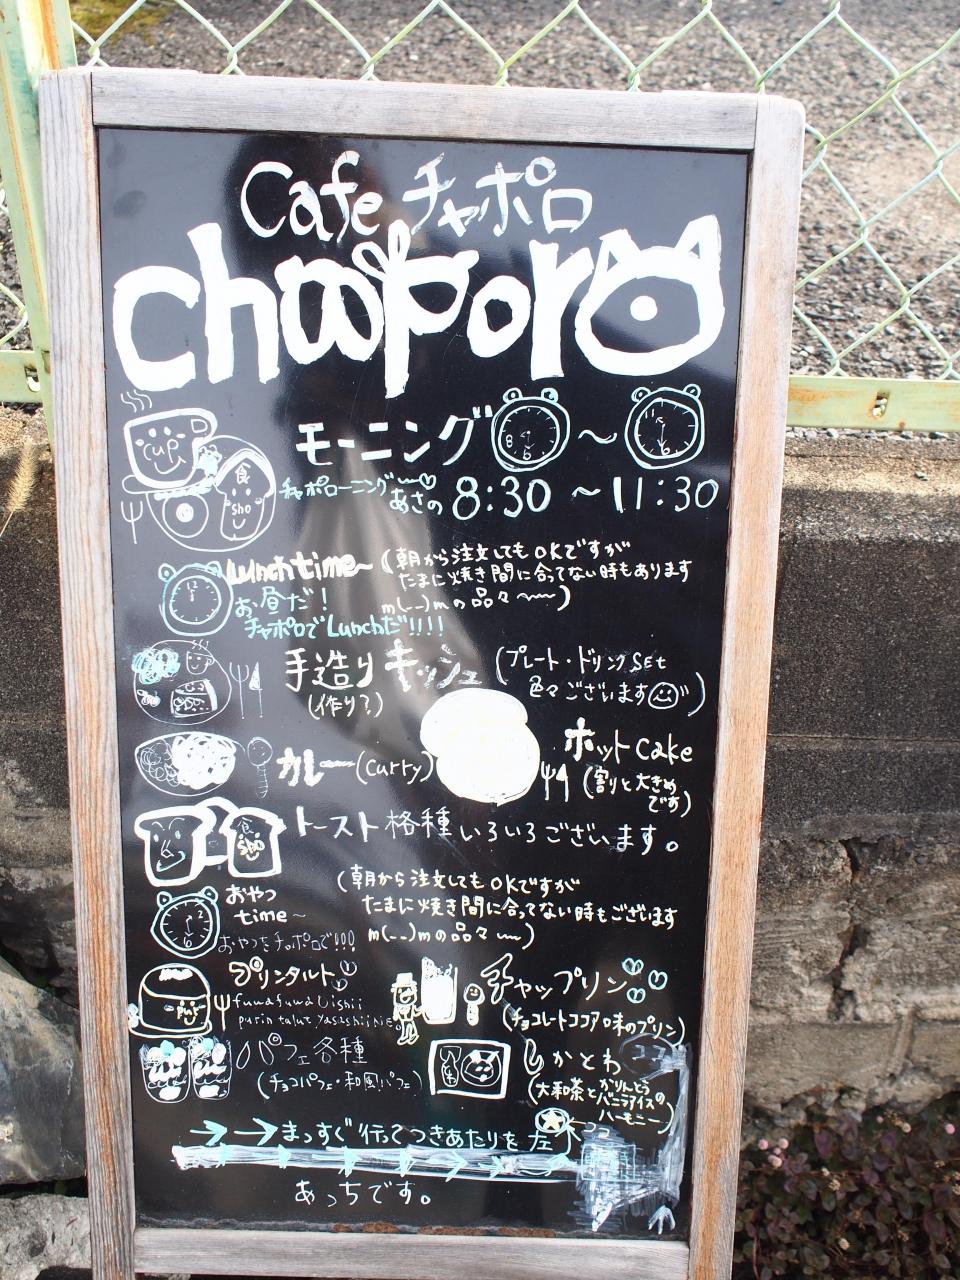 Cafe チャポロ
chaaporo
cup
食
sho
モーニング ～
チャポローニング
あさの 8:30 ～ 11:30
Lunchtime～
お昼だ！
チャポロでLunchだ!!!!
(朝から注文してもOKですが
たまに焼き間に合ってない時もあります
m(__)mの品々～)
手造りキッシュ
(作り?)
(プレート・ドリンクSEt
色々ございます)
カレー(curry)
ホットcake
(割と大きめ
です)
食
sho
トースト各種いろいろございます。
おやつ
time～
おやつもチャポロで!!!
(朝から注文してもOKですが
たまに焼き間に合ってない時もございます
m(__)mの品々～)
プリンタルト
fuwafuwa Oishii
purin talut yasashii NE
チャップリン
(チョコレートココア味のプリン)
パフェ各種
(チョコパフェ・和風パフェ)
しかとわ
(大和茶とかりんとうの
バニラアイスの
ハーモニー)
ココ
→→まっすぐ行ってつきあたりを左
ココ
あっちです。